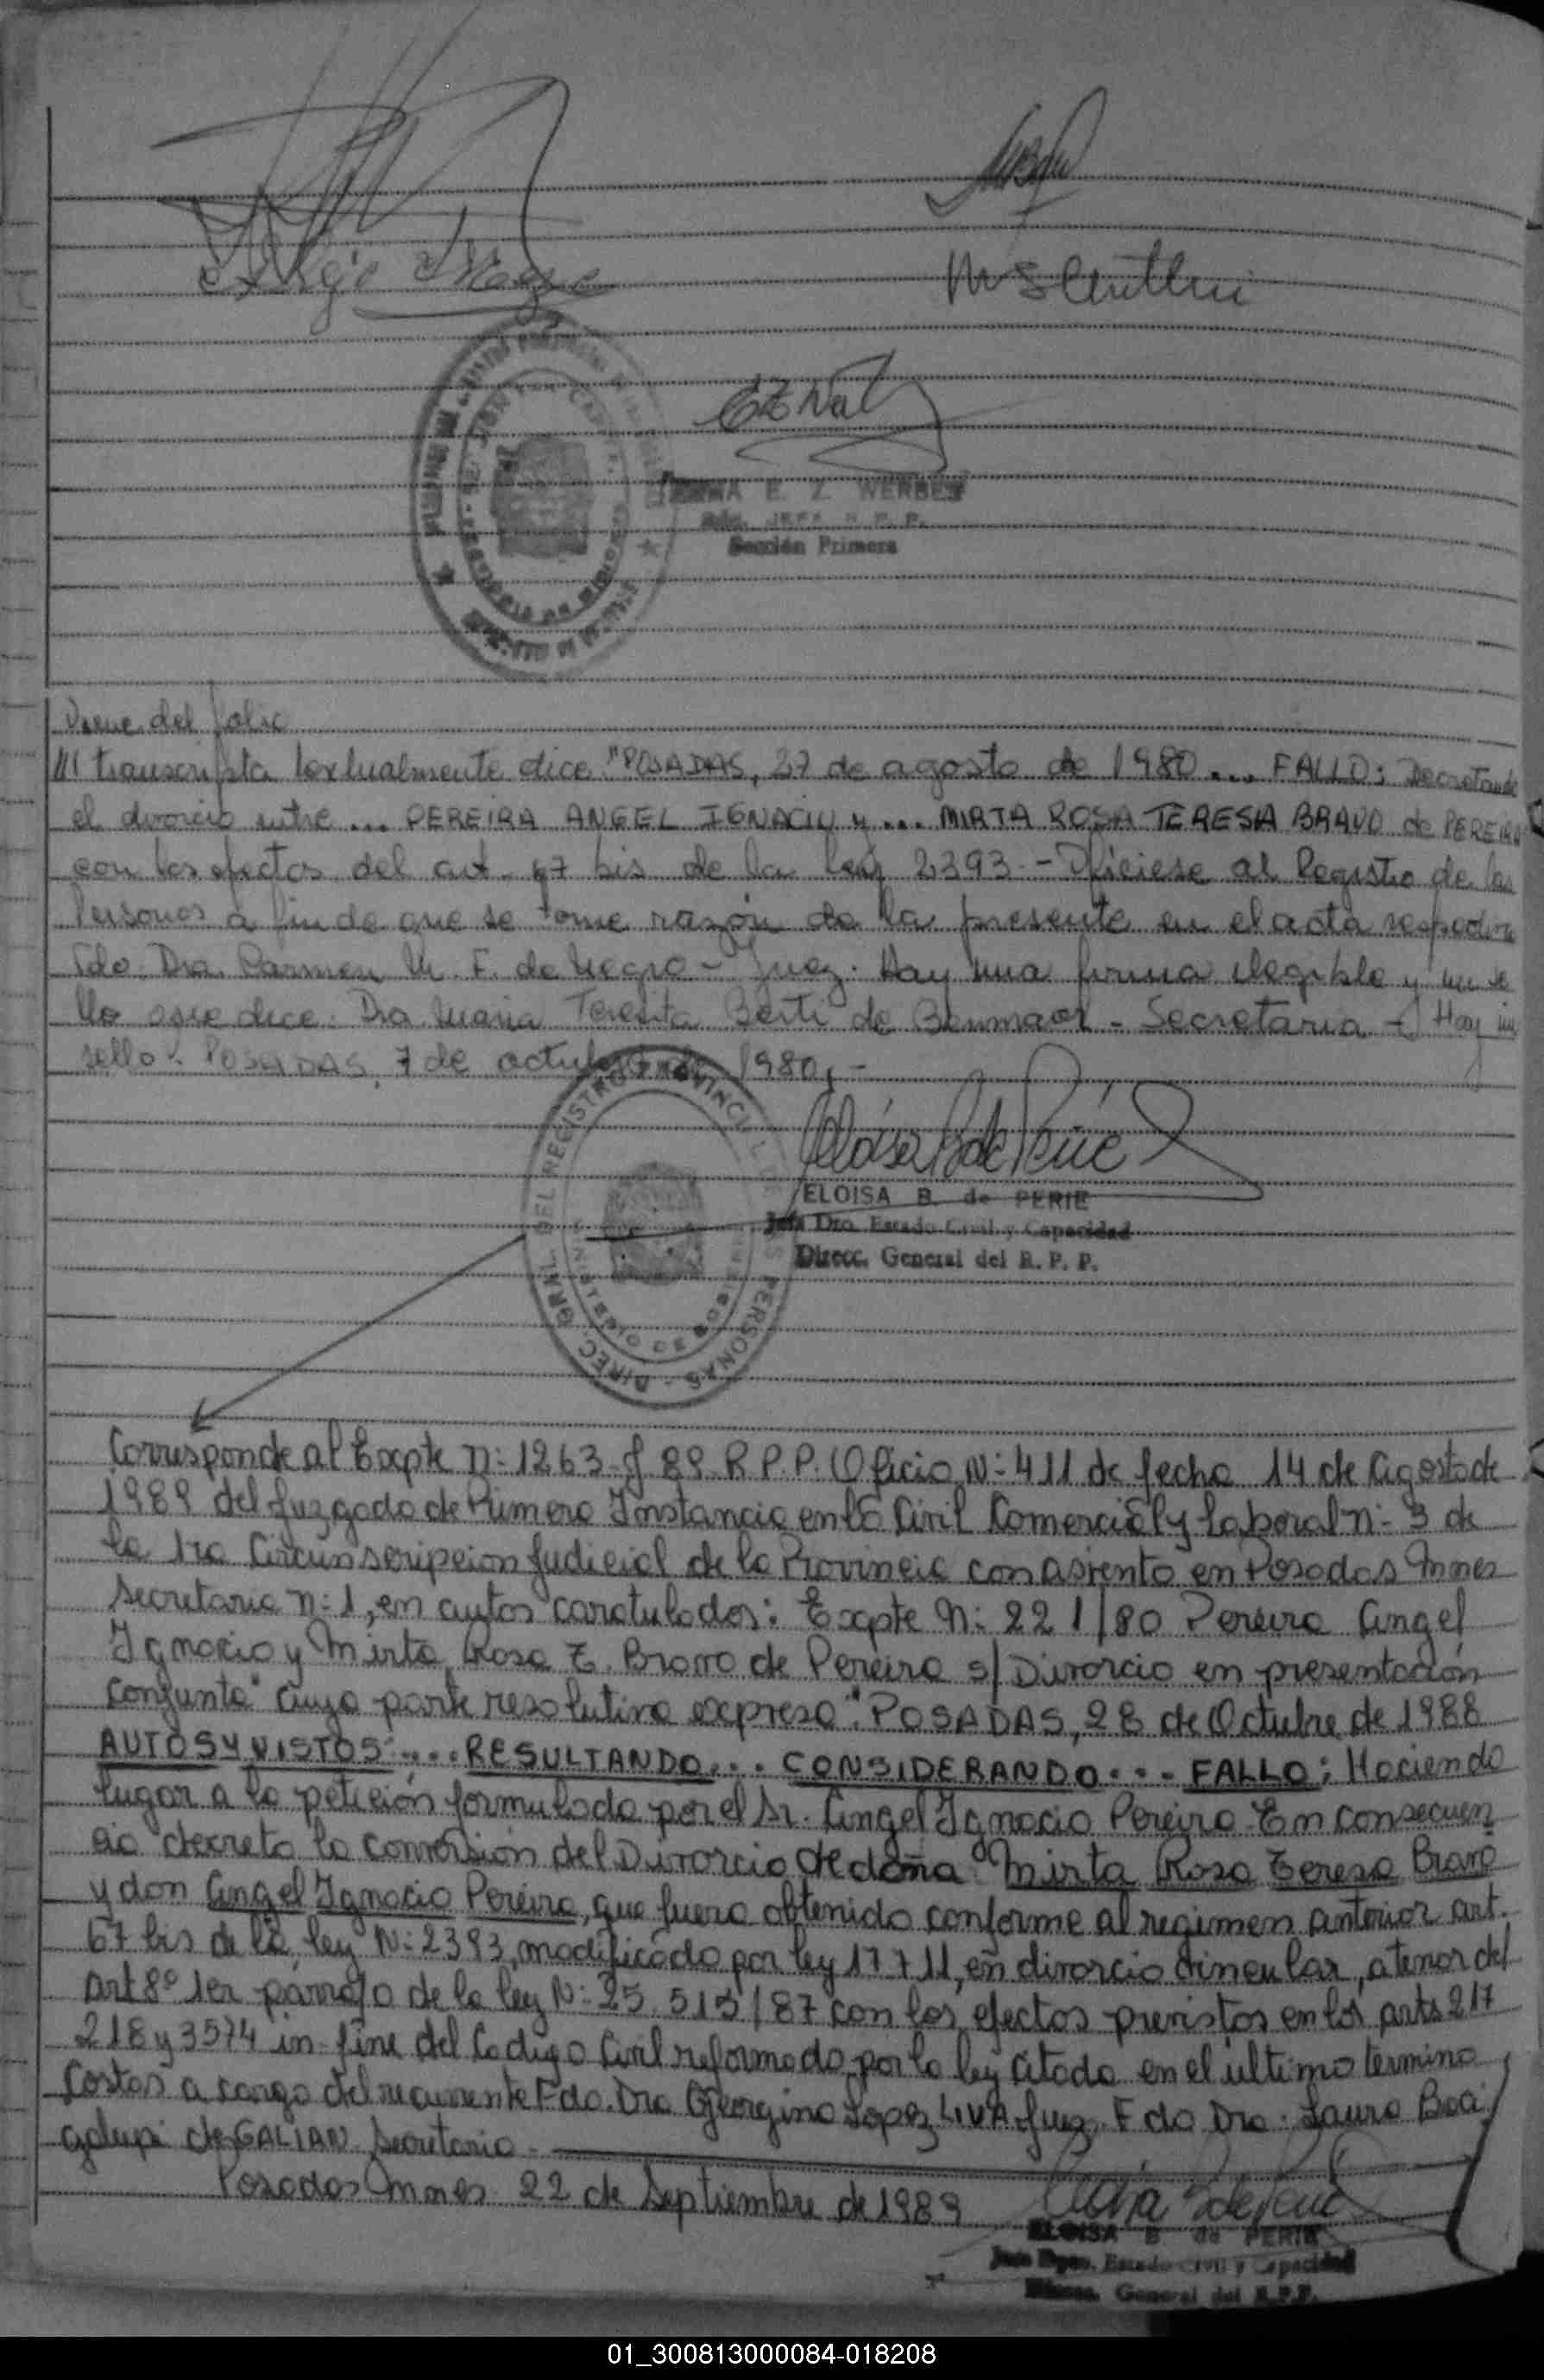 M S
E Z Wa
E. Z. WERBES
JEFA R. P. P.
Sección Primera
Viene del folio
/// transcripta textualmente dice "POSADAS, 27 de agosto de 1980 ... FALLO: Decretando
el divorcio entre ... PEREIRA ANGEL IGNACIO y ... MIRTA ROSA TERESA BRAVO de PEREIRA
con los efectos del art. 67 bis de la ley 2393.- Ofíciese al Registro de las
Personas a fin de que se tome razón de la presente en el acta respectiva
Fdo. Dra. Carmen M. F. de Negro - Juez. Hay una firma ilegible y un se
llo que dice: Dra. Maria Teresita Berti de Benmaor - Secretaria - Hay un
sello". POSADAS, 7 de octubre de 1980.-
DIREC. GRAL. DEL REGISTRO PROVINCIAL DE PERSONAS
Eloisa B de Perié
ELOISA B. de PERIE
Jefa Dto. Estado Civil y Capacidad
Direcc. General del R. P. P.
Corresponde al Expte n: 1263-J 89 R.P.P. Oficio N: 411 de fecha 14 de Agosto de
1989 del Juzgado de Primera Instancia en lo Civil Comercial y laboral n: 3 de
la 1ra Circunscripcion Judicial de la Provincia con asiento en Posadas Mnes
secretaria n: 1, en autos caratulados: Expte N: 221/80 Pereira Angel
Ignacio y Mirta Rosa T. Bravo de Pereira s/ Divorcio en presentación
conjunta" cuya parte resolutiva expresa": POSADAS, 28 de Octubre de 1988
AUTOS Y VISTOS: ... RESULTANDO ... CONSIDERANDO ... FALLO; Haciendo
lugar a la petición formulada por el Sr. Angel Ignacio Pereira. En consecuen
cia decreto la conversión del Divorcio de doña Mirta Rosa Teresa Bravo
y don Angel Ignacio Pereira, que fuera obtenido conforme al regimen anterior art.
67 bis de la ley N: 2393, modificado por ley 17711, en divorcio vincular, a tenor del
art 8º 1er párrafo de la ley N: 25.515/87 con los efectos previstos en los arts 217
218 y 3574 in-fine del Codigo Civil reformado por la ley citada en el ultimo termino
Costas a cargo del recurrente Fdo. Dra Georgina Lopez LIVA Juez. Fdo Dra: Laura Boa
galupi de GALIAN Secretaria -
Posadas Mnes 22 de Septiembre de 1989
Eloisa B de Perié
ELOISA B de PERIE
Jefa Dpto. Estado Civil y Capacidad
Direcc. General del R.P.P.
01_300813000084-018208